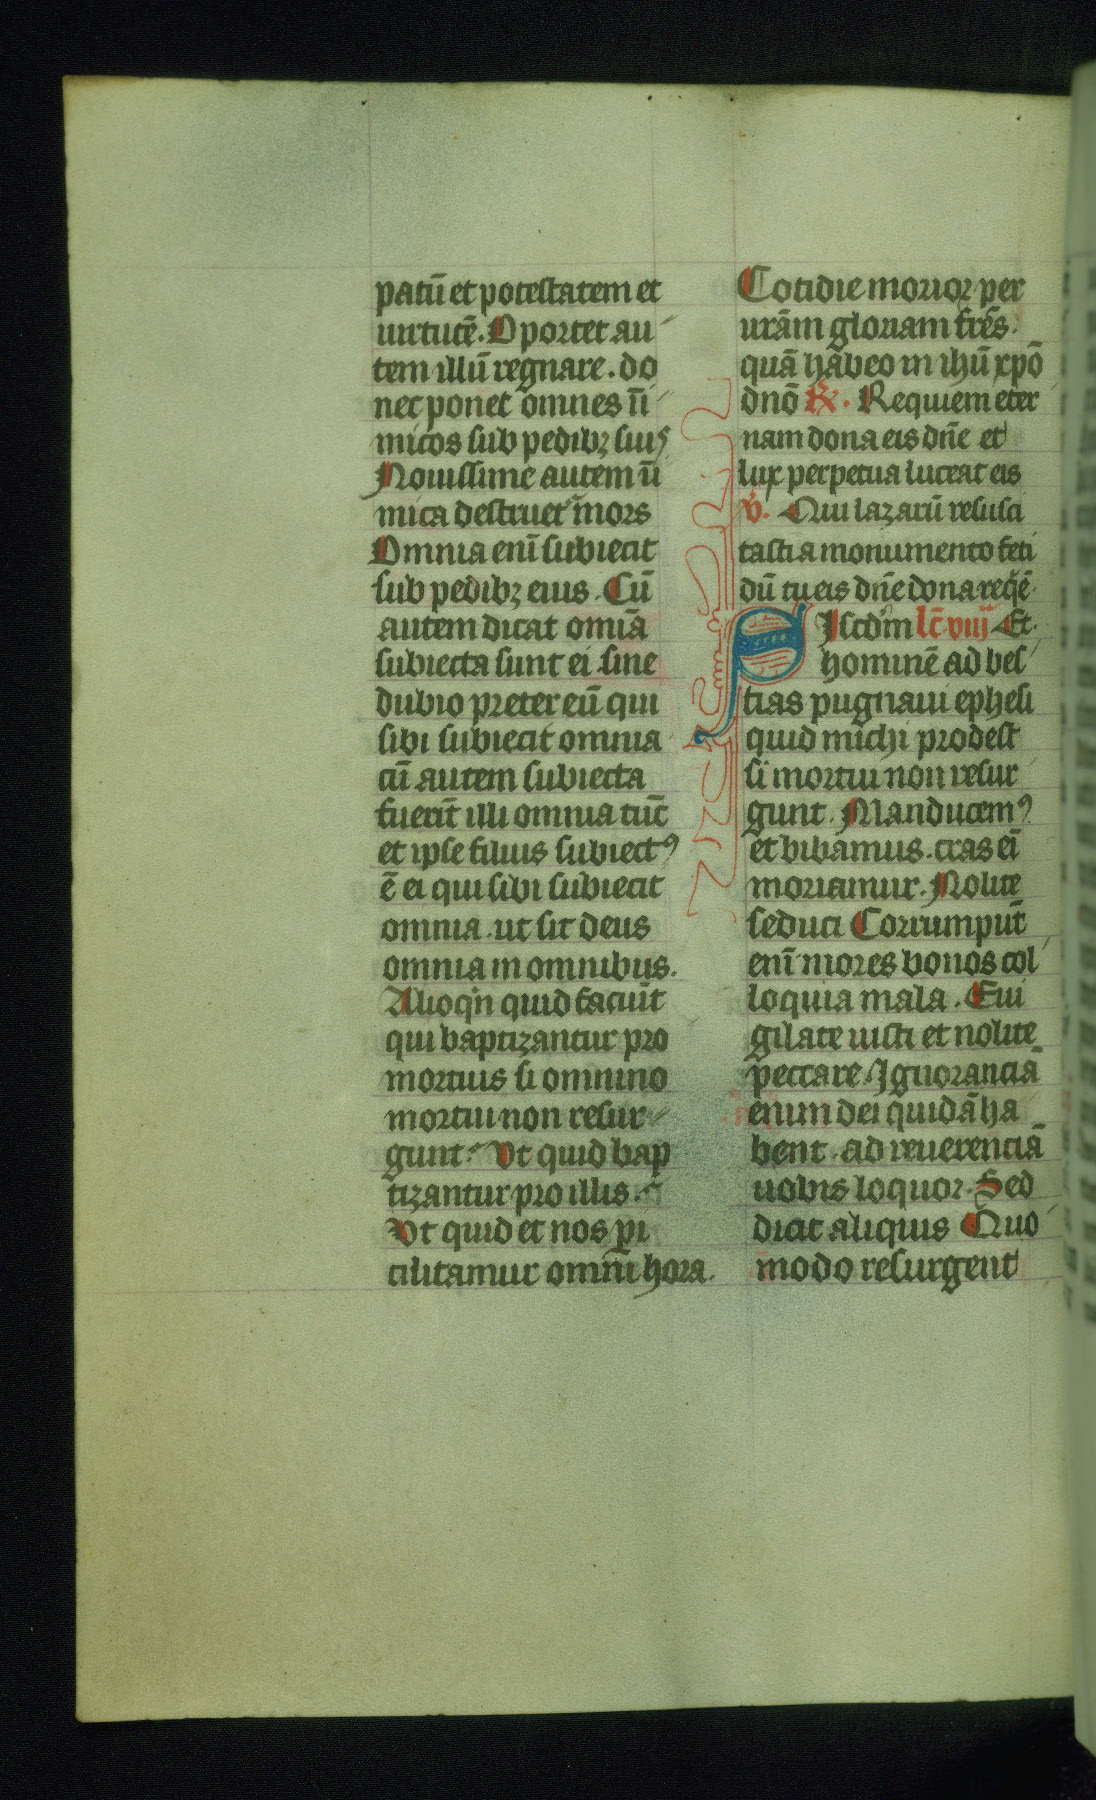 patū et potestatem et
uirtutē. Oportet au
tem illū regnare. do
nec ponet omnes īi
micos sub pedibꝫ suis
Nouissime autem īi
mica destruet̄ mors
Omnia enī subiecit
sub pedibꝫ eius. Cū
autem dicat omīa
subiecta sunt ei sine
dubio preter eū qui
sibi subiecit omnia
cū autem subiecta
fuerīt illi omnia tūc
et ipse filius subiectꝰ
ē ei qui sibi subiecit
omnia. ut sit deus
omnia in omnibus.
Alioqͥn quid faciūt
qui baptizantur pro
mortuis si omnino
mortui non resur
gunt. Vt quid bap
tizantur pro illis.
Vt quid et nos ꝑi
clitamur omni hora.
Cotidie morior per
urām gloriam frēs.
quā habeo in ihū xpō
dnō ℟. Requiem eter
nam dona eis dn̄e et
lux perpetua luceat eis
℣. Qui lazarū resusci
tasti a monumento feti
dū tu eis dn̄e dona reqͥē
Si scdm lc̄ viij Et
hominē ad bes
tias pugnaui ephesi
quid michi prodest
si mortui non resur
gunt. Manducemꝰ
et bibamus. cras eī
moriamur. Nolite
seduci Corrumpūt
enī mores bonos col
loquia mala. Eui
gilate iusti et nolite
peccare. Ignoranciā
enim dei quidā ha
bent. ad reuerenciā
uobis loquor. Sed
dicit aliquis Quo
modo resurgent